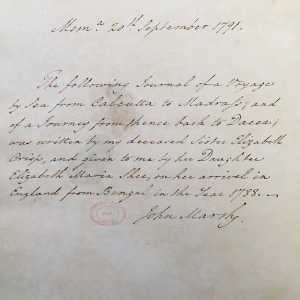 Mem.a 20th September 1791.
The following Journal of a Voyage
by Sea from Calcutta to Madrass, and
of a Journey from thence back to Dacca,
was written by my deceased Sister Elizabeth
Crisp, and given to me by her Daughter
Elizabeth Maria Shee, on her arrival in
England from Bengal in the Year 1788.
John Marsh.